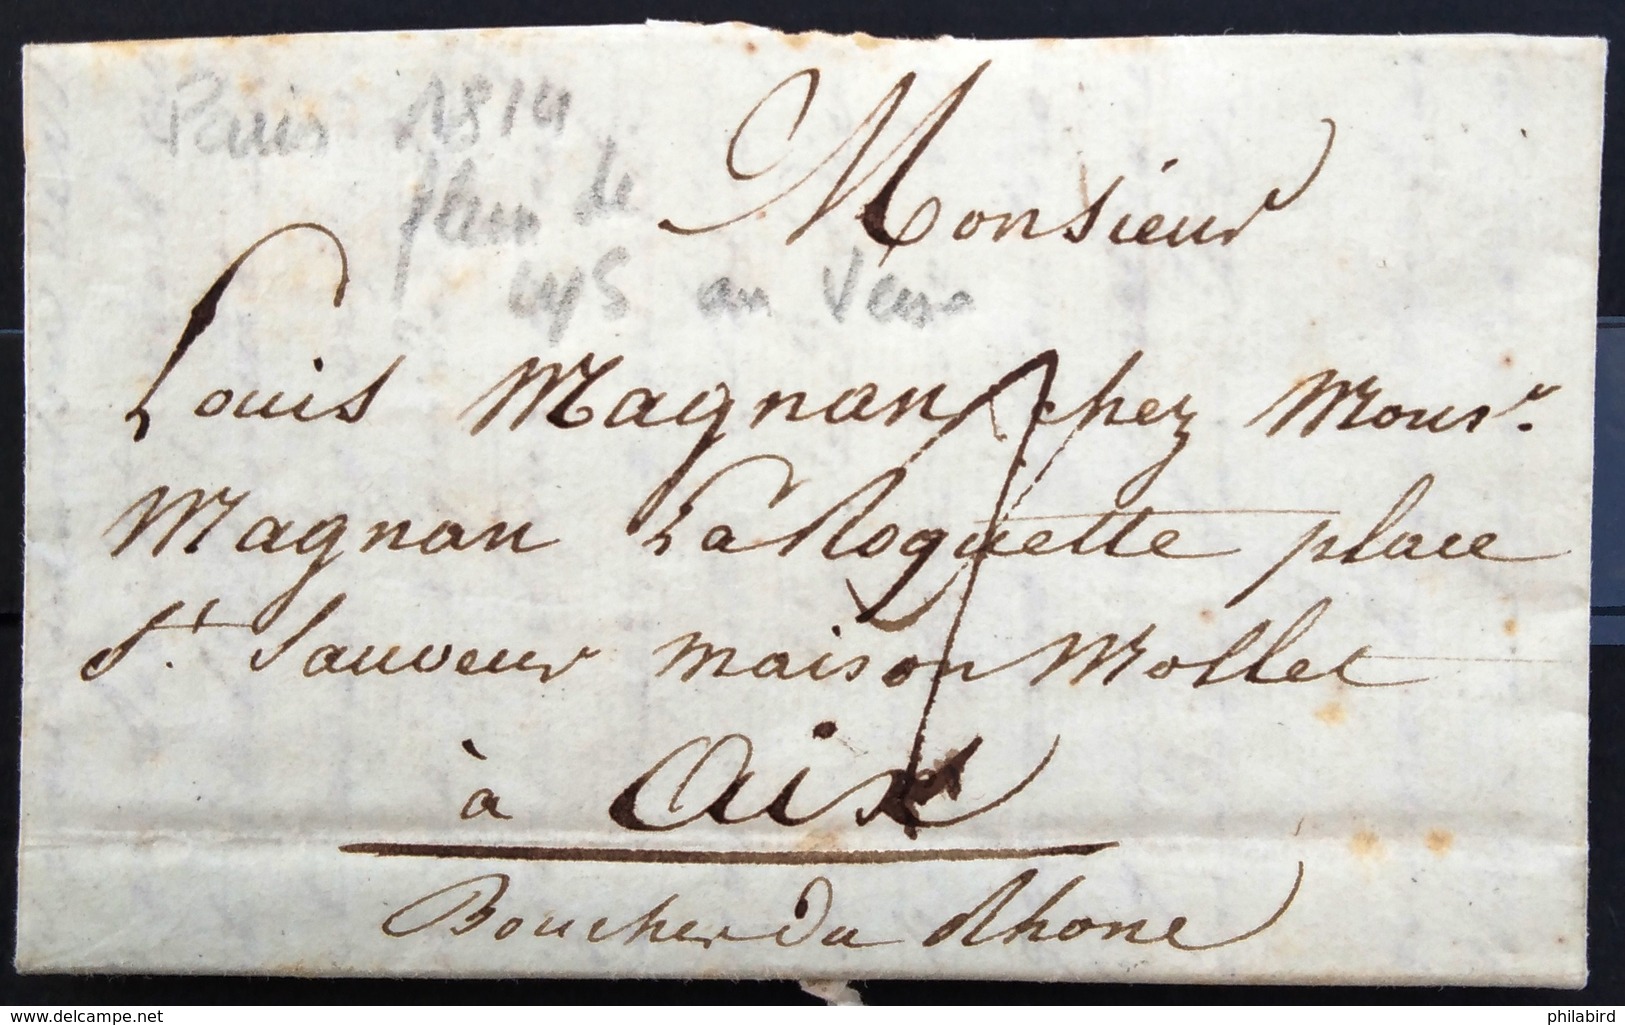 Paris 1814
fleur de
lys au verso
Monsieur
Louis Magnan chez Monsr.
Magnan La Roquette place
St. Sauveur maison Mollet
à Aix
Bouches du Rhone
www.delcampe.net
philabird